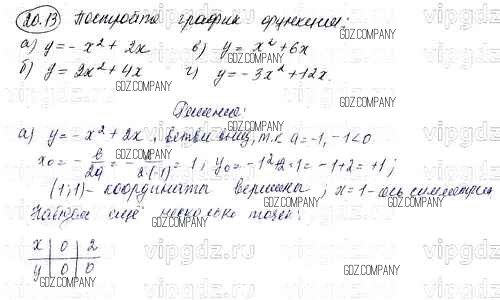 20.13 Постройте график функции:
а) y = - x² + 2x в) y = x² + 6x
б) y = 2x² + 4x г) y = -3x² + 12x.
Решение:
а) y = -x² + 2x, ветви вниз, т.к a = -1, -1<0
x₀ = - в/2a = - 2/2·(-1) = 1; y₀ = -1² + 2·1 = -1+2 = +1;
(1;1) - координата вершины; x = 1 - ось симметрии
Найдём ещё несколько точек:
x | 0 | 2
y | 0 | 0
GDZ.COMPANY
vipgdz.ru